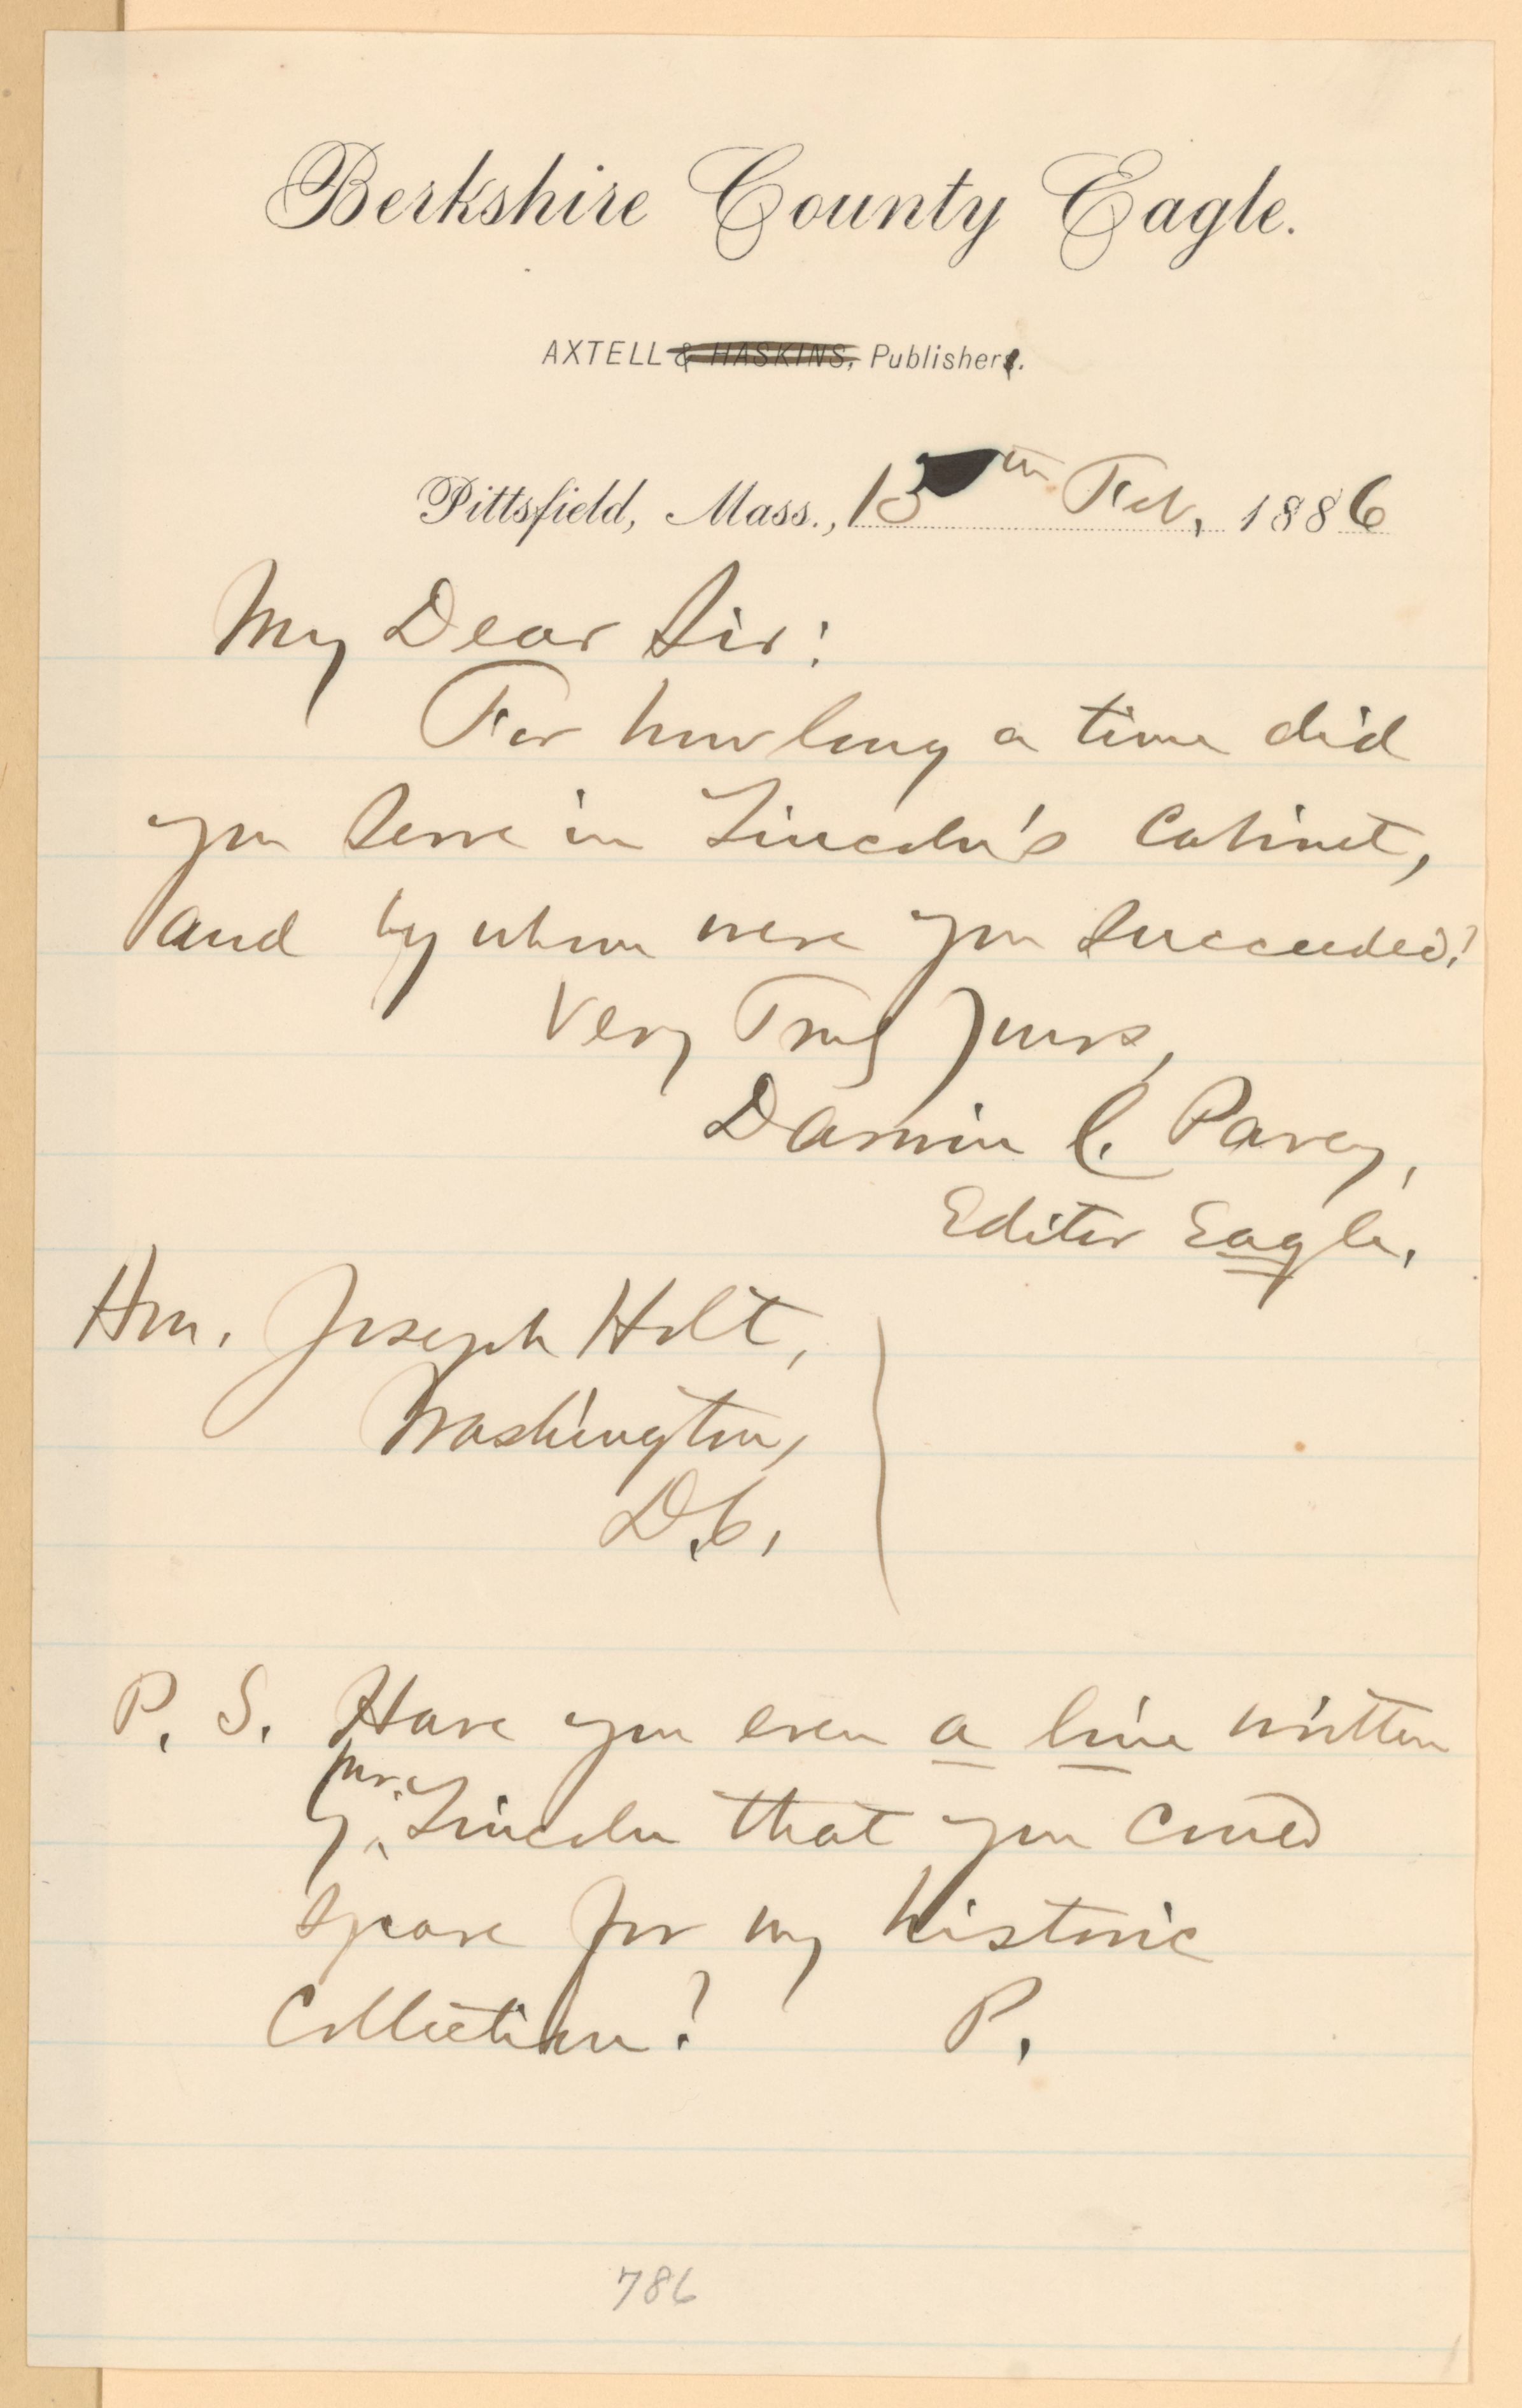 Berkshire County Eagle.
AXTELL & HASKINS, Publishers.
Pittsfield, Mass., 15th Feb, 1886
My Dear Sir:
For how long a time did
you serve in Lincoln's Cabinet,
and by whom were you succeeded?
Very Truly Yours,
Darwin C. Pavey,
Editor Eagle.
Hon. Joseph Holt,
Washington,
D.C.
P. S. Have you even a line written
by Mr. Lincoln that you could
spare for my historic
Collection? P.
786